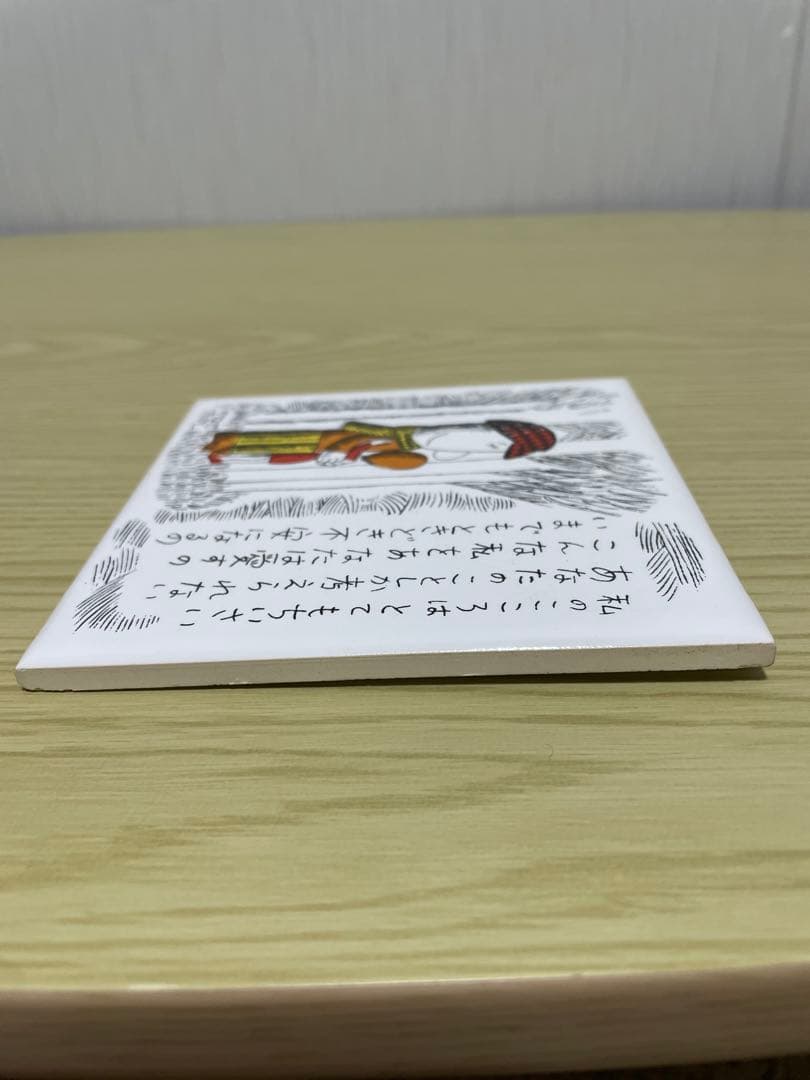 私のこころはとてもちいさい
あなたのことしか考えられない
こんな私をあなたは愛すの
いまでもときどき不安になるの